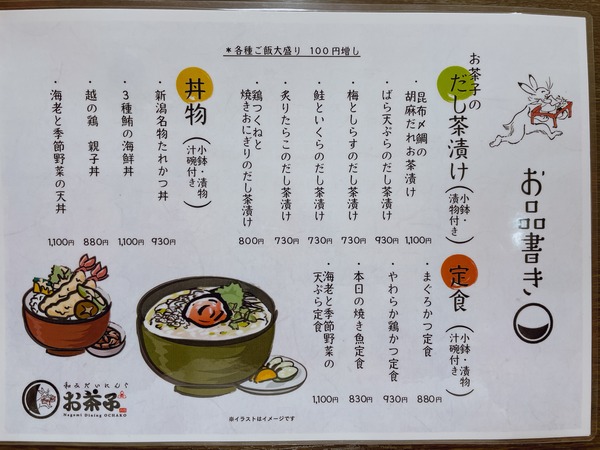 お品書き
＊各種ご飯大盛り 100円増し
お茶子の
だし茶漬け（小鉢・漬物付き）
・昆布〆鯛の
胡麻だれお茶漬け 1,100円
・ばら天ぷらのだし茶漬け 930円
・梅としらすのだし茶漬け 730円
・鮭といくらのだし茶漬け 730円
・炙りたらこのだし茶漬け 730円
・鶏つくねと
焼きおにぎりのだし茶漬け 800円
丼物（小鉢・漬物
汁椀付き）
・新潟名物たれかつ丼 930円
・3種鮪の海鮮丼 1,100円
・越の鶏 親子丼 880円
・海老と季節野菜の天丼 1,100円
定食（小鉢・漬物
汁椀付き）
・まぐろかつ定食 880円
・やわらか鶏かつ定食 930円
・本日の焼き魚定食 830円
・海老と季節野菜の
天ぷら定食 1,100円
和みだいにんぐ
お茶子
Nagomi Dining OCHAKO
※イラストはイメージです